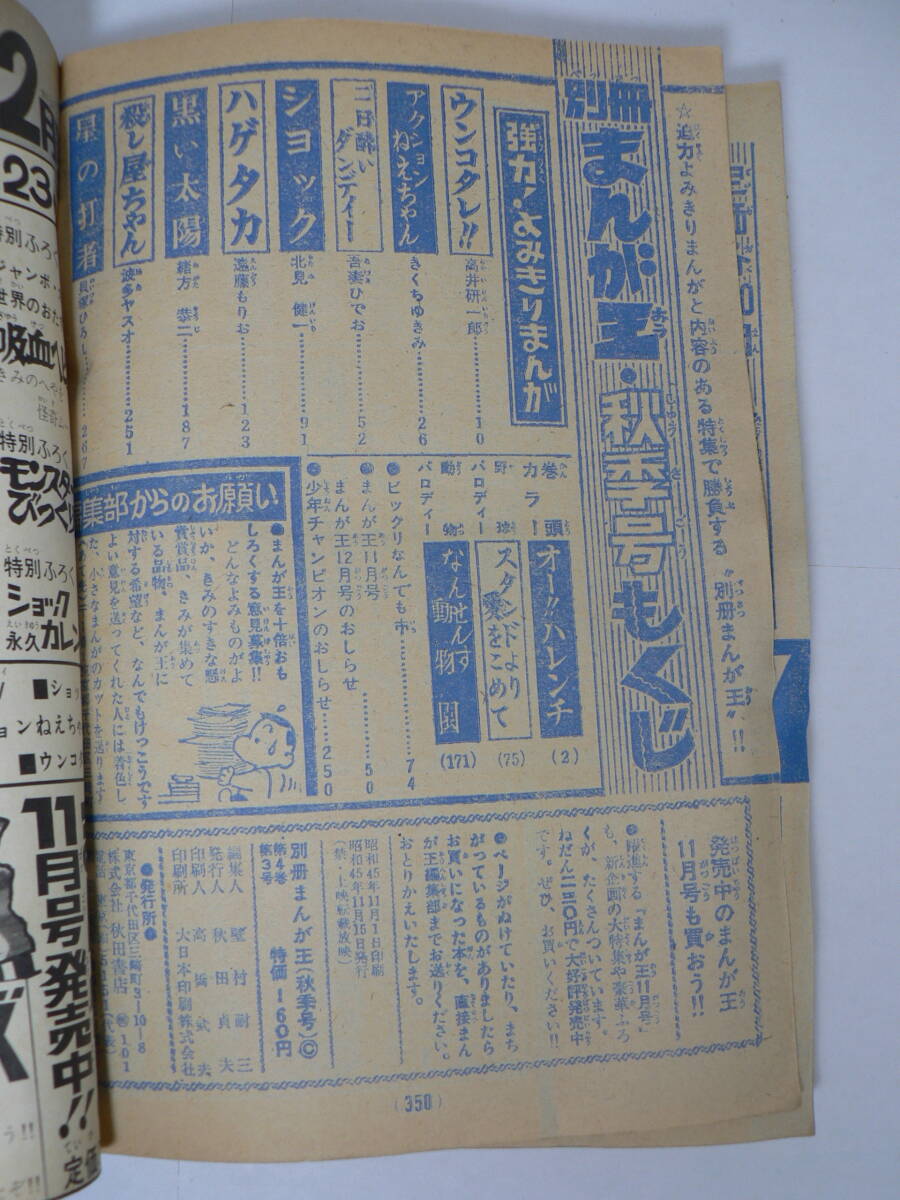 別冊 まんが王・秋季号もくじ
☆迫力よみきりまんがと内容のある特集で勝負する“別冊まんが王”!!
強力!よみきりまんが
ウンコタレ!! 高井研一郎………10
アクションねえちゃん きくちゆきみ………26
二日酔いダンディー 吾妻ひでお………52
ショック 北見健一………91
ハゲタカ 遠藤もりお………123
黒い太陽 緒方恭二………187
殺し屋ちゃん 波多ヤスオ………251
星の打者 ………267
巻頭カラー オー!!ハレンチ (2)
野球パロディー スタンドより愛をこめて (75)
動物パロディー なんせんす動物園 (171)
●ビックリなんでも市………74
●まんが王11月号
まんが王12月号のおしらせ………50
●少年チャンピオンのおしらせ………250
集部からのお願い
●まんが王を十倍おも
しろくする意見募集!!
どんなよみものがよ
いか、きみのすきな懸
賞賞品、きみが集めて
いる品物。まんが王に
対する希望など、なんでもけっこうです
よい意見を送ってくれた人には着色し
た、小さなまんがのカットを送ります
発売中のまんが王
11月号も買おう!!
●躍進する『まんが王11月号』
も、新企画の大特集や豪華ふろ
くが、たくさんついています。
ねだん二三〇円で大好評発売中
です。ぜひ、お買いください!!
●ページがぬけていたり、まち
がっているものがありましたら
お買いになった本を、直接まん
が王編集部までお送りください。
おとりかえいたします。
昭和45年11月1日印刷
昭和45年11月15日発行
(禁・上映転載放映)
別冊まんが王(秋季号)©
第4巻
第3号
特価 160円
編集人 壁村耐三
発行人 秋田貞夫
印刷人 高橋武夫
印刷所 大日本印刷株式会社
●発行所●
東京都千代田区三崎町3-10-8
株式会社 秋田書店 101
(350)
2月
23
特別ふろく
ジャンボ
世界のおた
吸血
きみのへやを
特別ふろく
モンスター
びっくり
特別ふろく
ショック
永久カレン
■ショッ
ョンねえちゃ
■ウンコタ
11月号発売中!!
定価